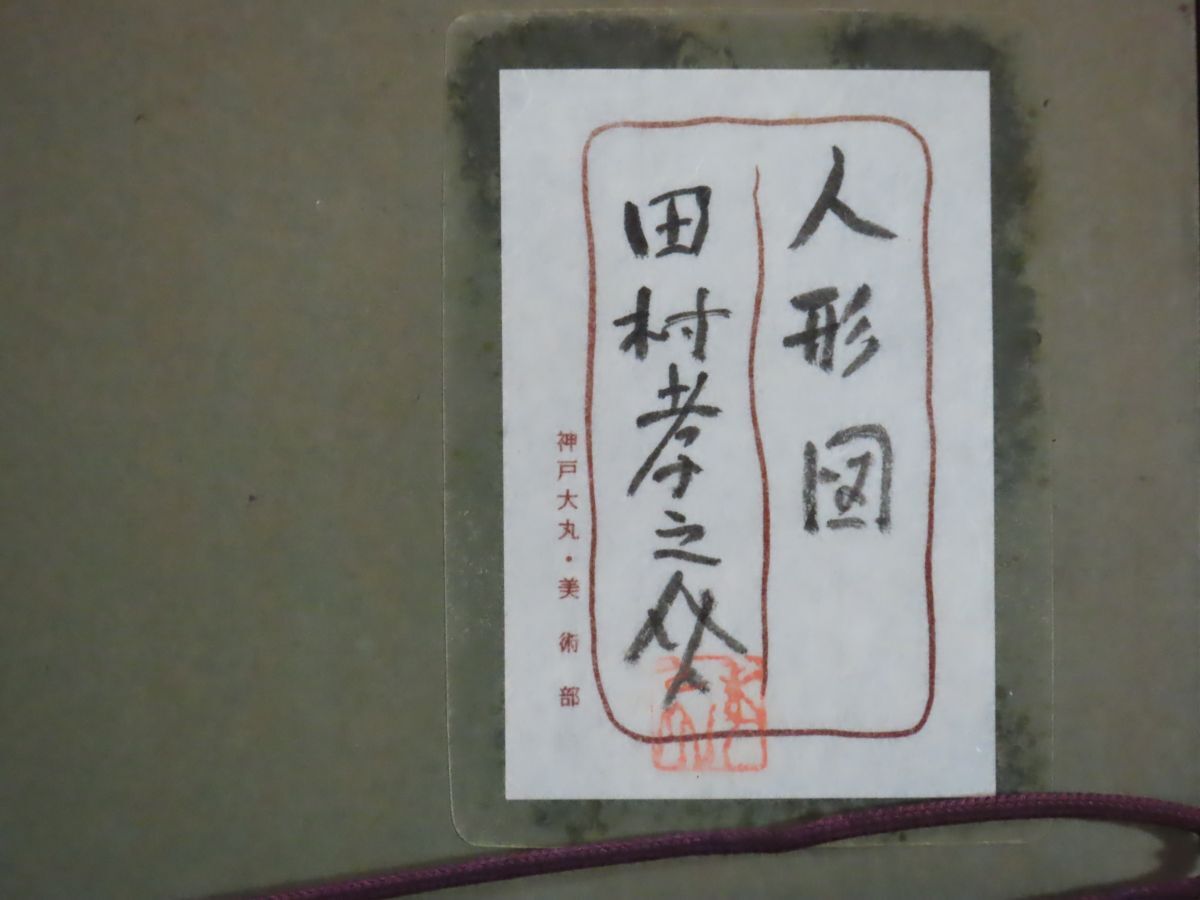 人形図
田村孝之介
神戸大丸・美術部